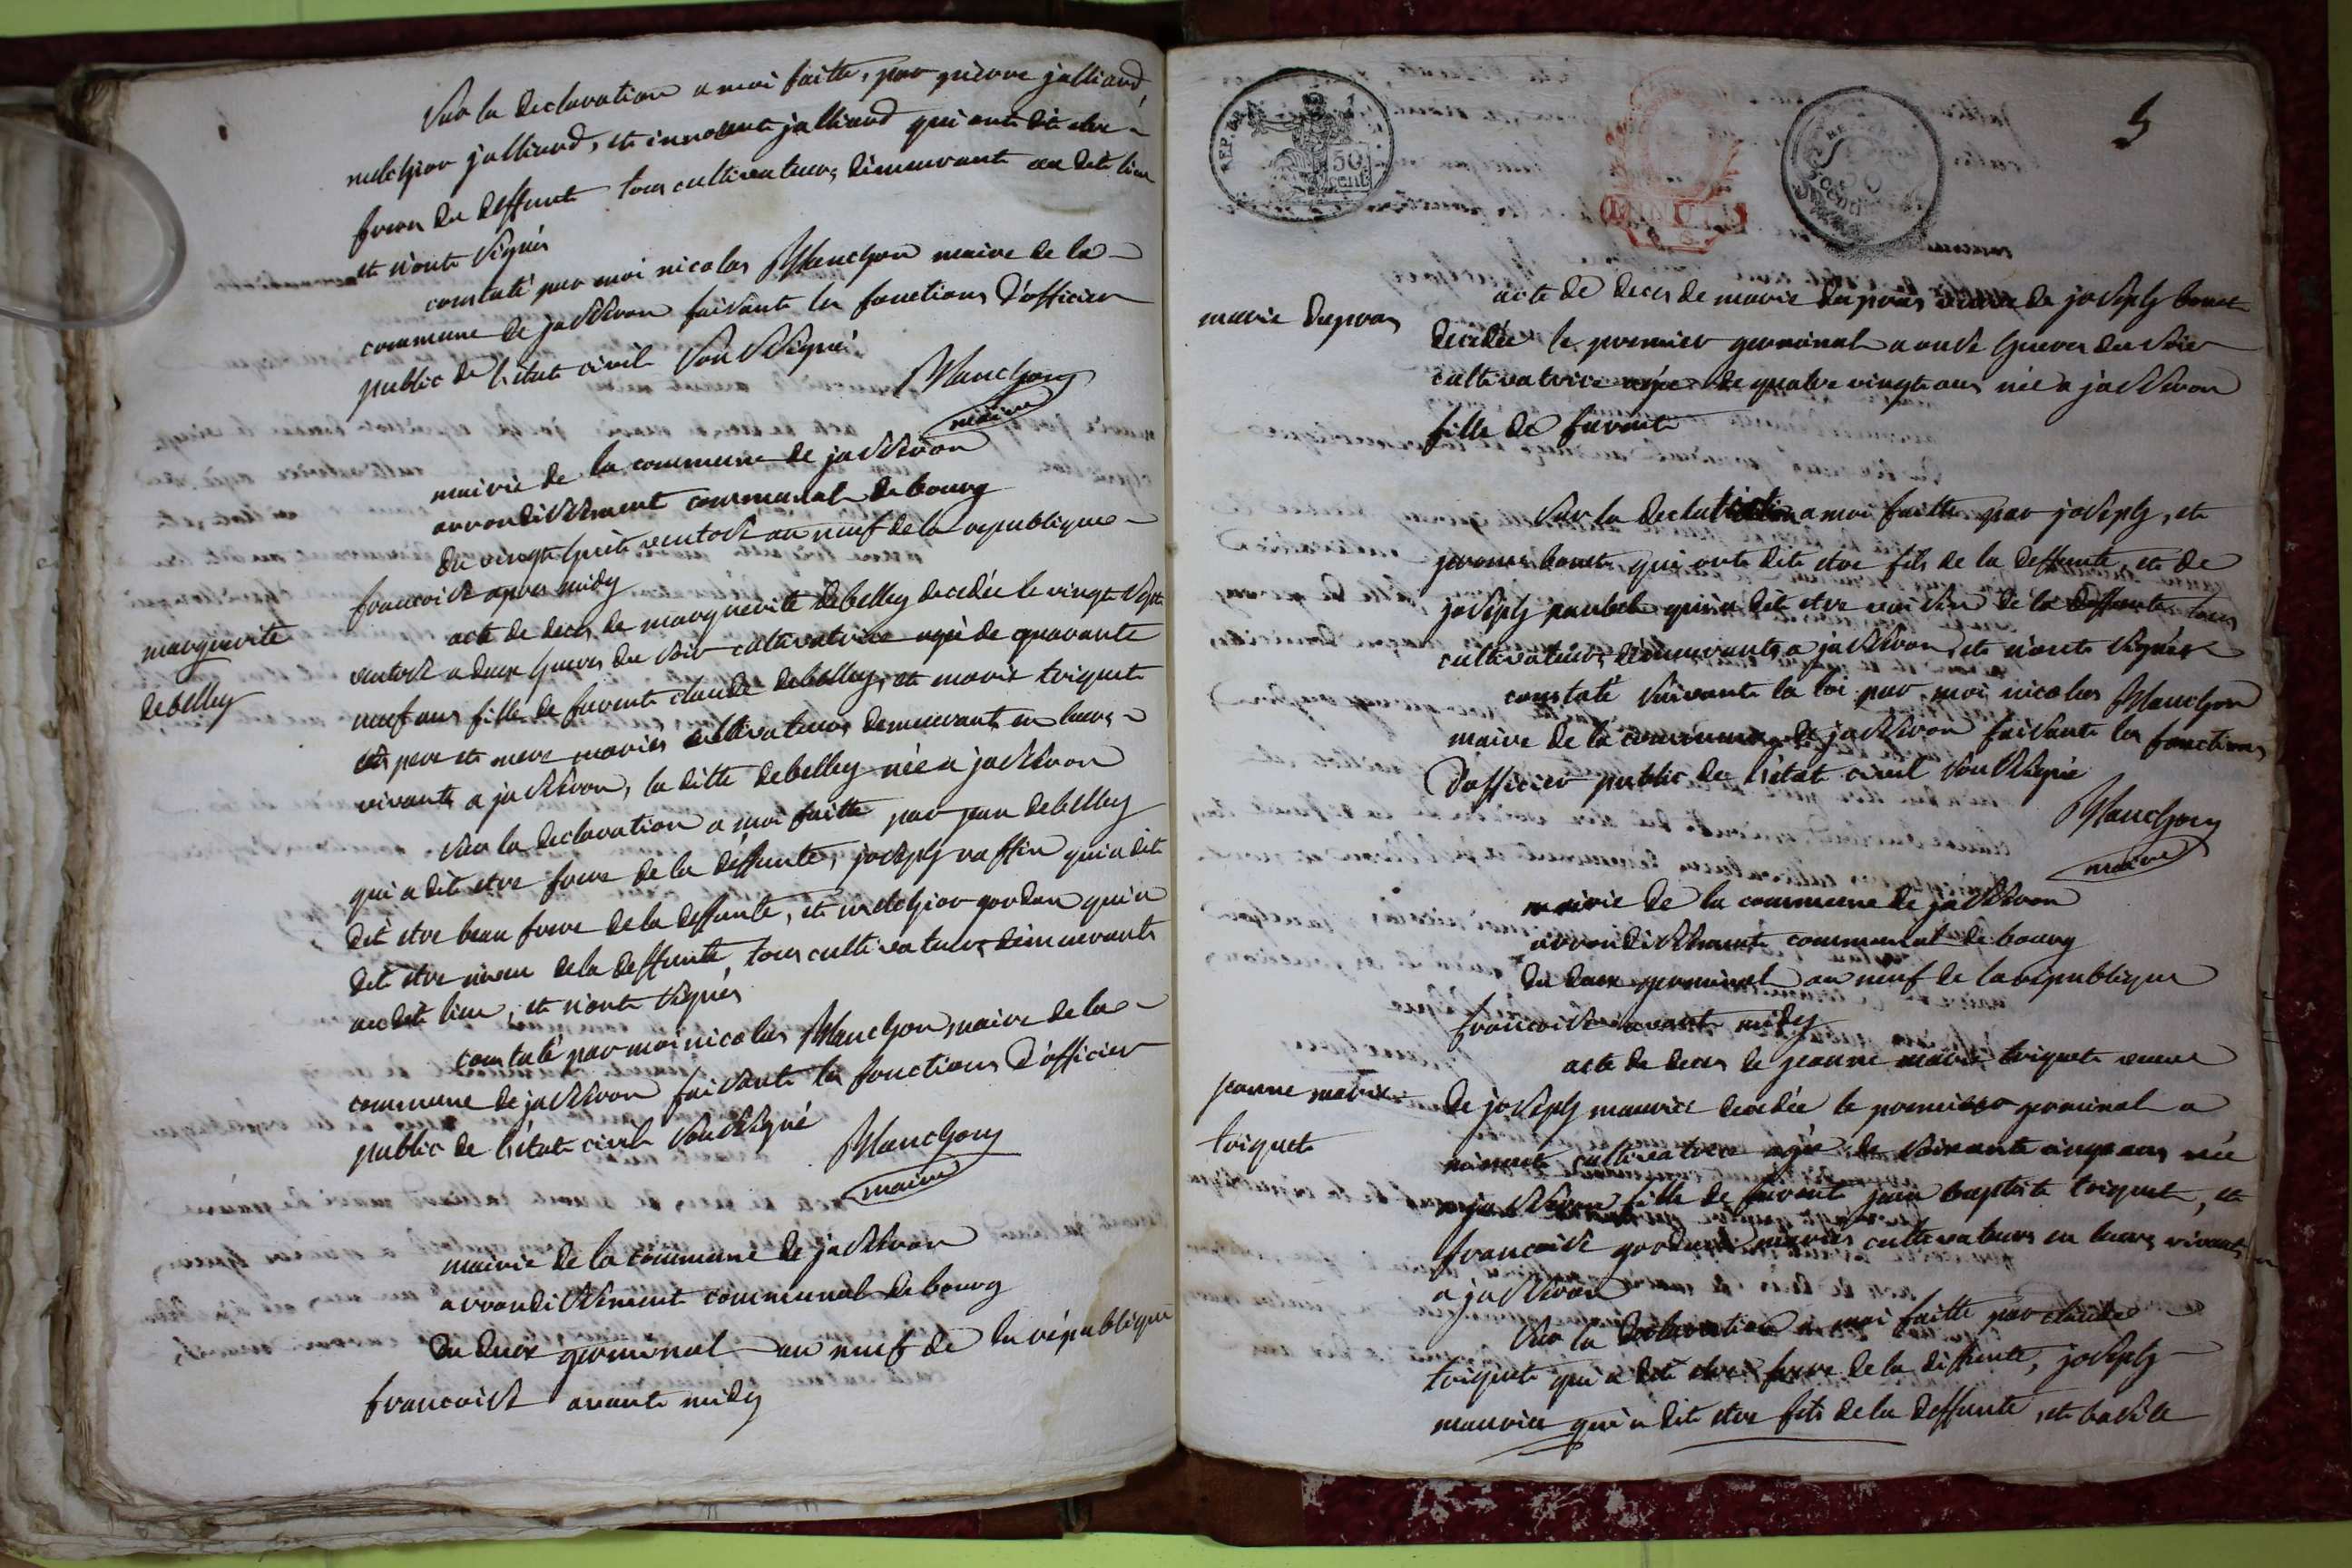 Sur la declaration a moi faitte, par pierre jalliard,
melchior jalliard, et innocent jalliard qui ont dit etre
freres du deffunt tous cultivateurs, demeurants au dit lieu
et n'ont signés
constaté par moi nicolas Manchon maire de la
commune de jasseron faisante les fonctions d'officier
public de l'état civil soussigné
Manchon
maire
mairie de la commune de jasseron
arrondissement communal de bourg
du vingt huit ventose an neuf de la republique
francoise apres midy
marguerite
debelley
acte de deces de marguerite debelley decedée le vingt sept
ventose a deux heures du soir cultivatrice agée de quarante
neuf ans fille de furent claude debelley, et marie triquet
ses pere et mere mariés cultivateurs demeurant en leurs
vivants a jasseron, la ditte debelley née a jasseron
Sur la declaration a moi faitte par jean debelley
qui a dit etre frere de la deffunte, joseph raffin qui a dit
dit etre beau frere de la deffunte, et melchior gordan qui a
dit etre neveu de la deffunte, tous cultivateurs, demeurants
au dit lieu, et n'ont signés
constaté par moi nicolas Manchon, maire de la
commune de jasseron faisante les fonctions d'officier
public de l'état civil soussigné
Manchon
maire
mairie de la commune de jasseron
arrondissement communal de bourg
du deux germinal an neuf de la république
francoise avant midy
REP. FRA.
50
cent
MINUTE
50
centimes
5
marie dupras
acte de deces de marie dupras veuve de joseph bonet
decedée le premier germinal a onse heures du soir
cultivatrice agée de quatre vingt ans née a jasseron
fille de furent
Sur la declaration a moi faitte par joseph, et
jerome bonet qui ont dit etre fils de la deffunte, et de
joseph qui a dit etre voisin de la deffunte tous
cultivateurs, demeurants a jasseron, et n'ont signés
constaté suivant la loi par moi nicolas Manchon
maire de la commune de jasseron faisante les fonctions
d'officier public de l'état civil soussigné
Manchon
maire
mairie de la commune de jasseron
arrondissement communal de bourg
du deux germinal an neuf de la république
francoise avant midy
jeanne marie
triquet
acte de deces de jeanne marie triquet veuve
de joseph maurice decedée le premier germinal a
minuit cultivatrice agée de soixante cinq ans née
a jasseron fille de furent jean baptiste triquet, et
francoise gordan mariés cultivateurs en leurs vivants
a jasseron
Sur la declaration a moi faitte par claude
triquet qui a dit etre frere de la deffunte, joseph
maurice qui a dit etre fils de la deffunte, et basile